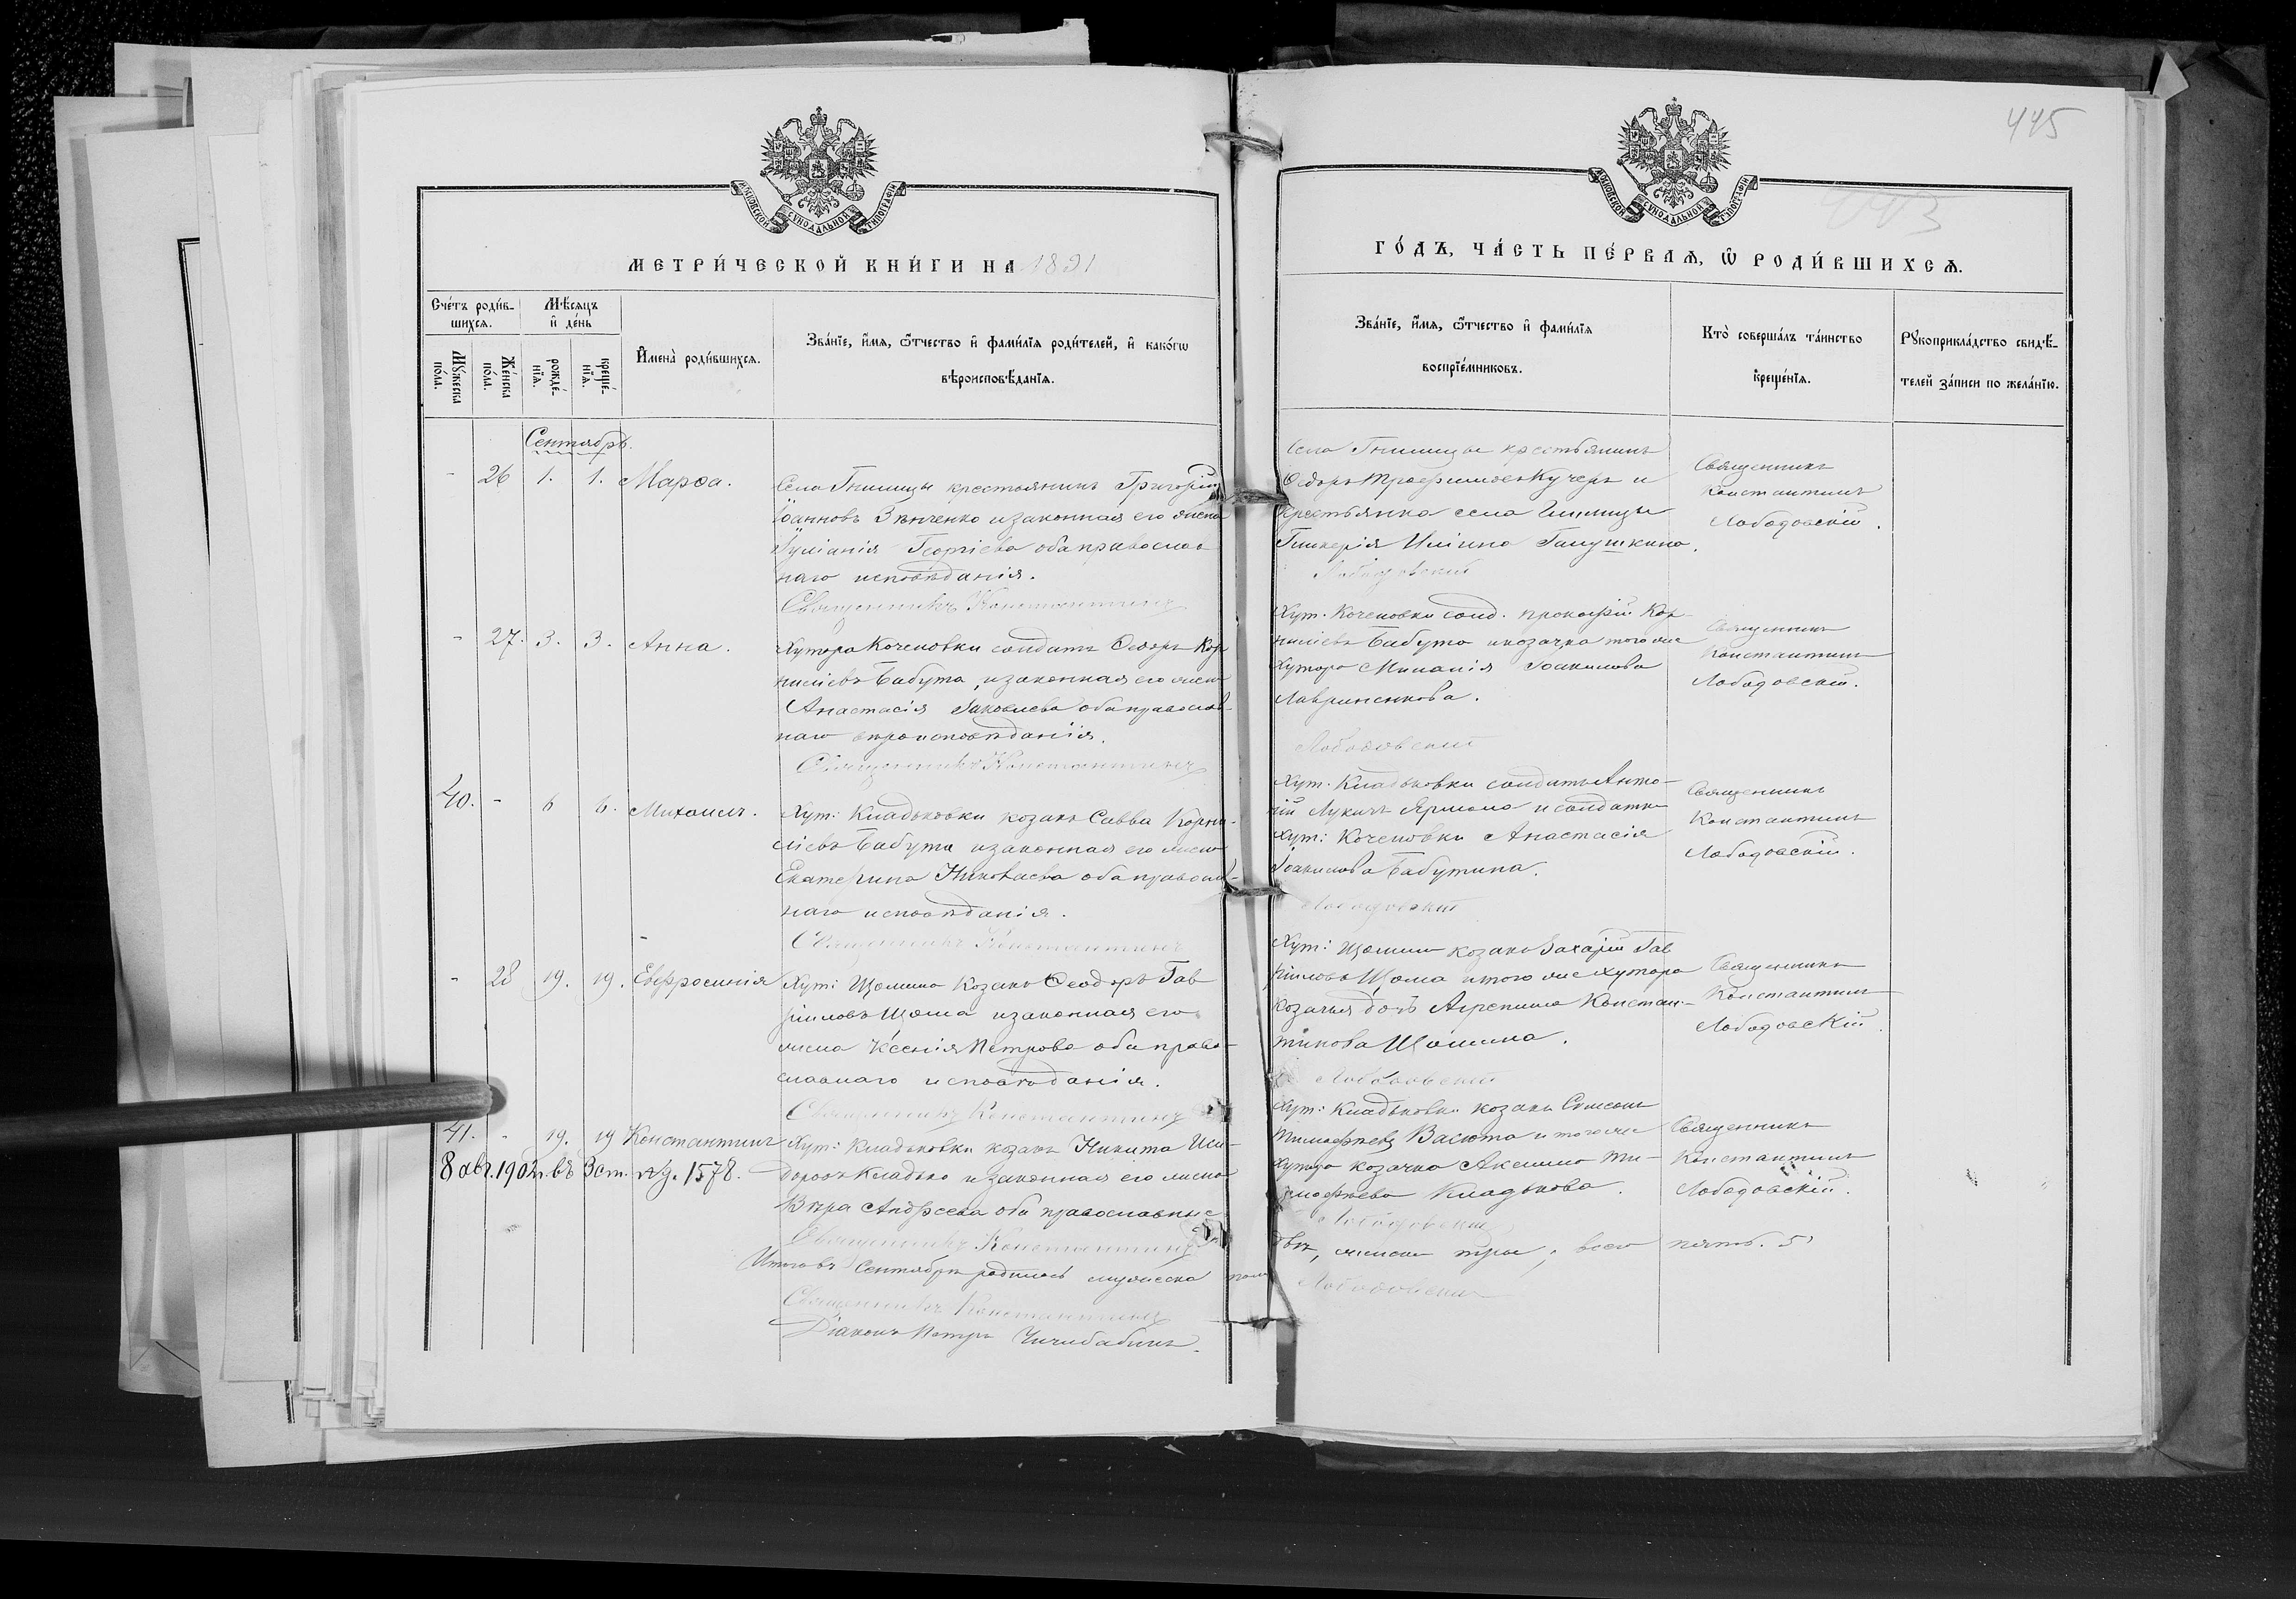 445
443
МОСКОВСКОЙ СѴНОДАЛЬНОЙ ТИПОГРАФІИ
МОСКОВСКОЙ СѴНОДАЛЬНОЙ ТИПОГРАФІИ
МЕТРИ́ЧЕСКОЙ КНИ́ГИ НА 1891
ГО́ДЪ, ЧА́СТЬ ПЕ́РВАЯ, Ѡ РОДИ́ВШИХСЯ.
Сче́тъ роди́в-
шихся.
Мѣ́сяцъ
и де́нь
Му́жеска
по́ла.
Же́нска
по́ла.
рожде́-
нїя.
креще́-
нїя.
Имена̀ роди́вшихся.
Зва́нїе, и́мя, ѻ́тчество и фами́лїя роди́телей, и како́гѡ
вѣроисповѣ́данїя.
Зва́нїе, и́мя, ѻ́тчество и фами́лїя
воспрїе́мниковъ.
Кто̀ соверша́лъ та́инство
креще́нїя.
Рꙋкоприкла́дство свидѣ́-
телей за́писи по жела́нїю.
Сентябрь.
- 26 1. 1. Марѳа.
Села Гнилицы крестьянинъ Григорій
Іоанновъ Зѣнченко и законная его жена
Іуліанія Георгіева оба православ
наго исповѣданія.
Священникъ Константинъ
Села Гнилицы крестьянинъ
Ѳедоръ Трофимовъ Кучеръ и
крестьянка села Гнилицы
Гликерія Иліина Галушкина.
Лободовскій
Священникъ
Константинъ
Лободовскій.
- 27. 3. 3. Анна.
Хутора Кочеповки солдатъ Ѳедоръ Кор
нилієвъ Бабута, и законная его жена
Анастасія Іаковлева оба православ-
наго вѣроисповѣданія.
Священникъ Константинъ
Хут. Кочеповки солд. Прокофій Кор
нилієвъ Бабута и козачка того же
хутора Миланія Іоакимова
Лавриненкова.
Лободовскій
Священникъ
Константинъ
Лободовскій.
40. - 6 6. Михаилъ.
Хут: Кладьковки козакъ Савва Корни-
лієвъ Бабута и законная его жена
Екатерина Николаева оба православ-
наго исповѣданія.
Священникъ Константинъ
Хут. Кладьковки солдатъ Анто-
ній Лукичъ Ярмола и солдатка
хут: Кочеповки Анастасія
Іоакимова Бабутина.
Лободовскій
Священникъ
Константинъ
Лободовскій.
- 28 19. 19. Евфросинія
Хут: Щомина козакъ Ѳеодоръ Гав
ріиловъ Щома и законная его
жена Ксенія Петрова оба право-
славнаго исповѣданія.
Священникъ Константинъ
Хут: Щомина козакъ Захарій Гав
ріиловъ Щома и того же хутора
козачья дочь Агрепина Констан-
тинова Щомина.
Лободовскій
Священникъ
Константинъ
Лободовскій.
41. - 19. 19 Константинъ
8 авг. 1908 г. въ 3 ст. 1578.
Хут: Кладьковки козакъ Никита Иси-
доровъ Кладько и законная его жена
Вѣра Андреева оба православные
Священникъ Константинъ
Хут: Кладьковки козакъ Симеонъ
Тимофѣевъ Васюта и того же
хутора козачка Аксинья Ти-
мофѣева Кладькова.
Лободовскій
Священникъ
Константинъ
Лободовскій.
Итого въ Сентябрѣ родилось мужеска пола
два, женска три, всего пять. 5
Священникъ Константинъ
Лободовскій
Діаконъ Петръ Чичибабинъ.